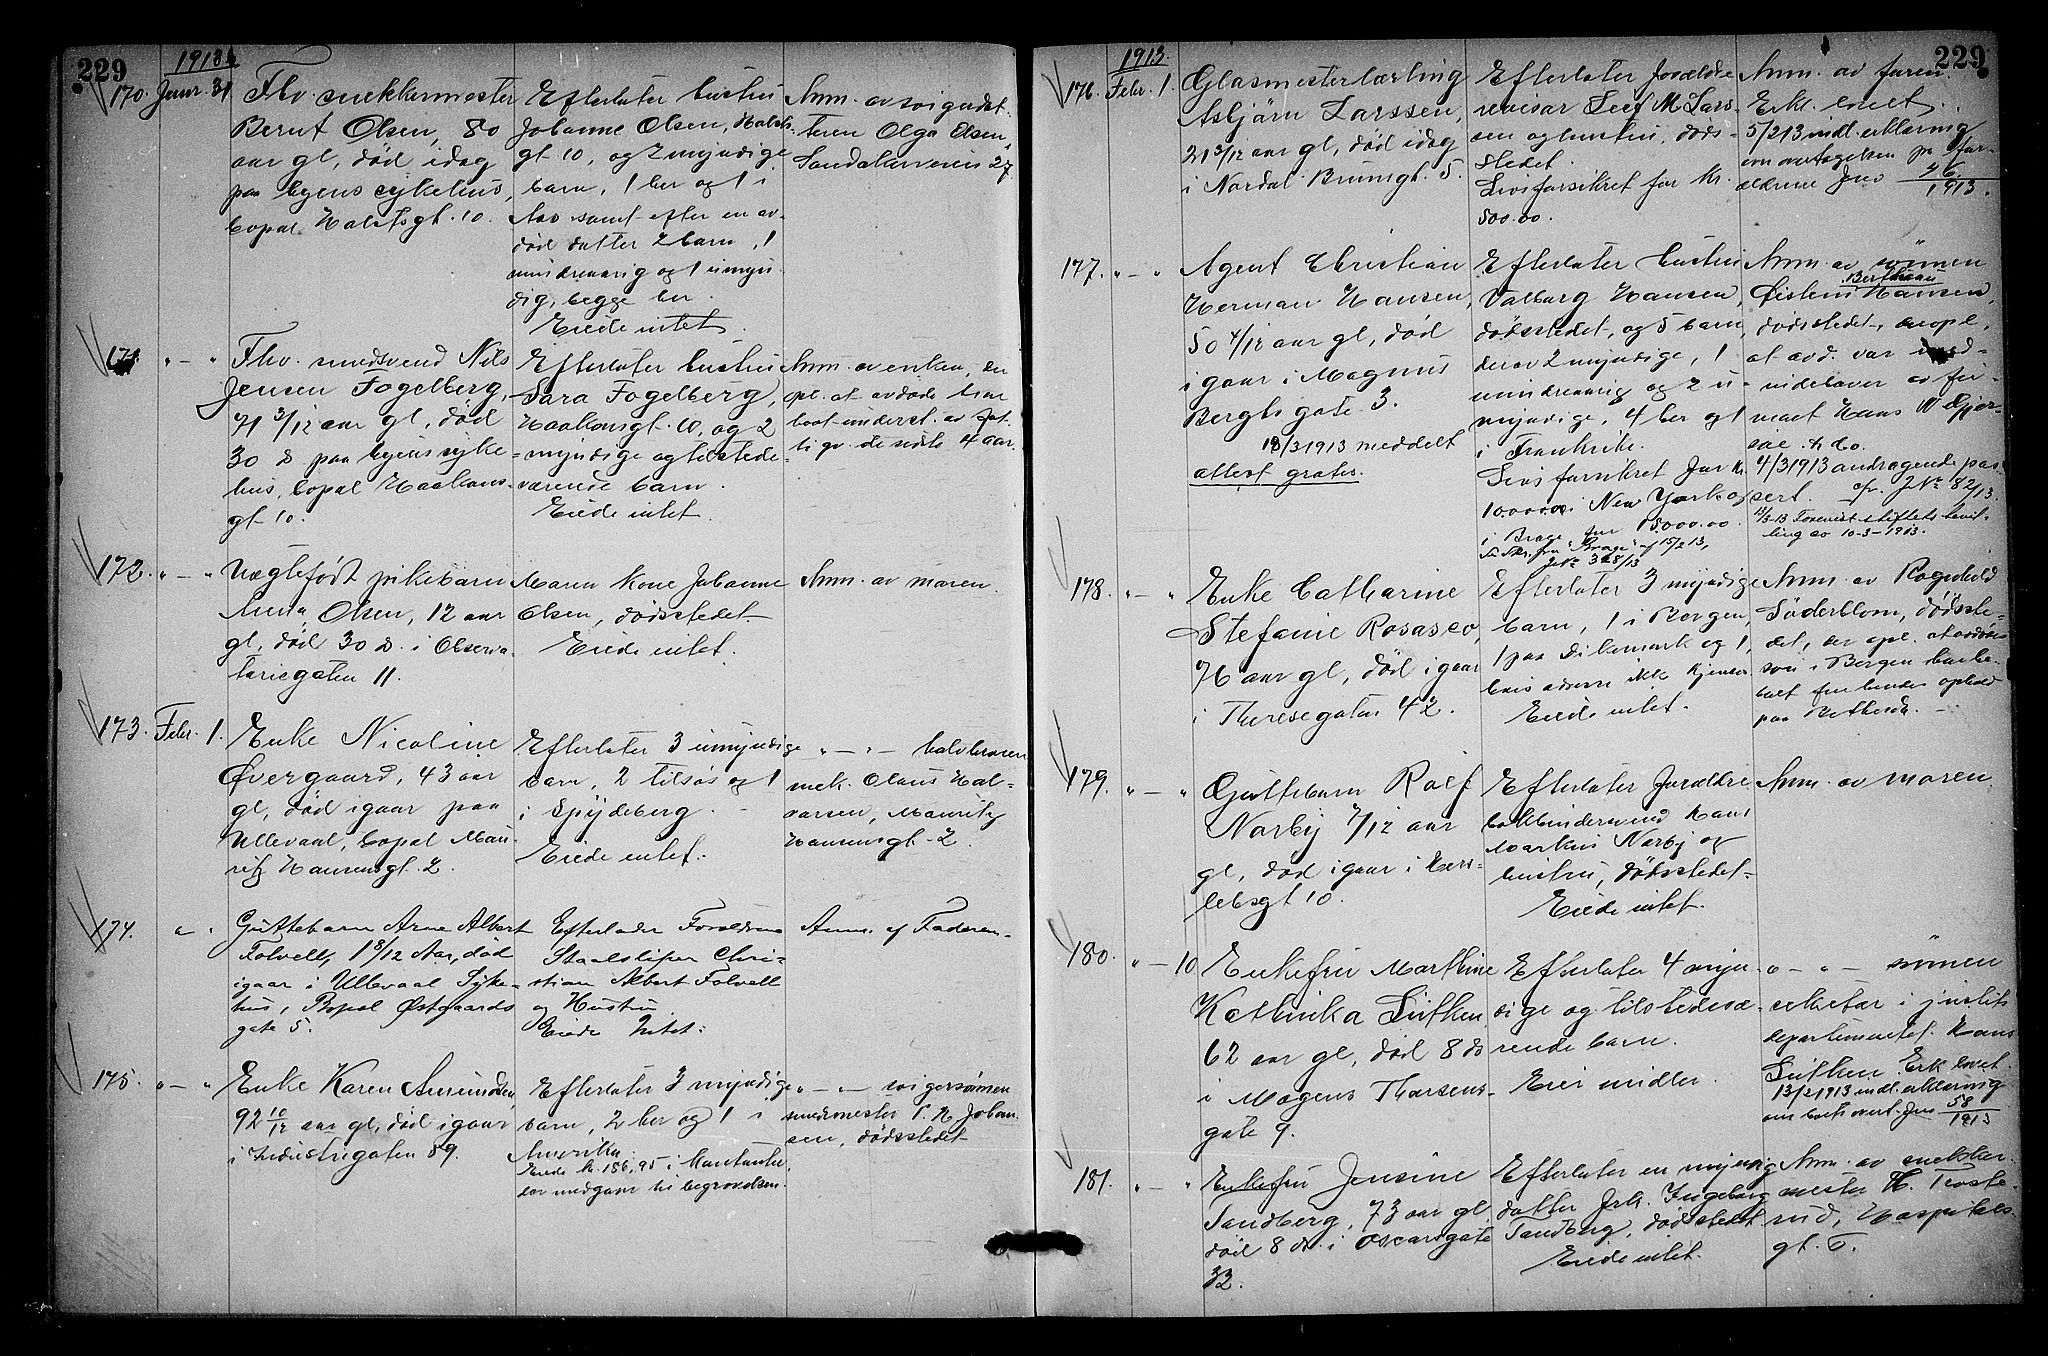 229
1913
170. Janr. 31
Fhv. snekkermester
Bernt Olsen, 80
aar gl, død idag
paa byens sykehus,
bopæl Holstsgt. 10.
Efterlater hustru
Johanne Olsen, Holsts-
gt 10, og 2 myndige
barn, 1 her og 1 i
Aas samt efter en av-
død datter 2 barn, 1
mindreaarig og 1 umyn-
dig, begge her.
Eiede intet.
Anm. av svigerdat-
teren Olga Olsen,
Sandakerveien 27
171. " — "
Fhv. smedsvend Nils
Jensen Fogelberg,
71 3/12 aar gl, død
30 ds paa byens syke-
hus, bopæl Haakons-
gt 10.
Efterlater hustru
Sara Fogelberg,
Haakonsgt. 10, og 2
myndige og tilstede-
værende barn.
Eiede intet.
Anm. av enken, der
opl. at avdøde har
hat underst. av fat-
tigv. de sidste 4 aar.
172. " — "
Uægtefødt pikebarn
Anna Olsen, 12 aar
gl, død 30 ds. i Observa-
toriegaten 11.
Moren kone Johanne
Olsen, dødsstedet.
Eiede intet.
Anm. av moren.
173. Febr. 1.
Enke Nicoline
Øvergaard, 43 aar
gl, død igaar paa
Ullevaal, bopæl Mau-
ritz Hansensgt. 2.
Efterlater 3 umyndige
barn, 2 tilsøs og 1
i Spydeberg.
Eiede intet.
" — " — halvbroren
mek. Olaus Hal-
vorsen, Mauritz
Hansensgt 2.
174. " "
Guttebarn Arne Albert
Folvell, 1 8/12 Aar, død
igaar i Ullevaal Syke-
hus, Bopæl Østgaards
gate 5.
Efterlader Forældrene
Staalsliper Chri-
stian Albert Folvell
og Hustru.
Eiede Intet.
Anm. af Faderen.
175. " — "
Enke Karen Amundsen,
92 10/12 aar gl, død igaar
i Industrigaten 59.
Efterlater 3 myndige
barn, 2 her og 1 i
Amerika.
Eiede kr. 186,95 i kontanter,
som medgaar til begravelsen.
" — " — svigersønnen
smedmester T. H. Johan-
sen, dødsstedet
229
1913.
176. Febr. 1.
Glasmesterlærling
Asbjørn Larssen,
21 3/12 aar gl, død idag
i Nordal Brunsgt. 5.
Efterlater forældre
revisor Leif M Lars-
sen og hustru, døds-
stedet.
Livsforsikret for kr.
500.00.
Anm. av faren.
Erkl. lovet.
5/2 13 indl. erklæring
om overtagelsen fra for-
ældrene Jno 46/1913.
177. " — "
Agent Christian
Herman Hansen,
50 4/12 aar gl, død
igaar i Magnus
Bergs gate 3.
18/3 1913 meddelt
attest gratis.
Efterlater hustru
Valborg Hansen,
dødsstedet, og 5 barn,
derav 2 myndige, 1
mindreaarig og 2 u-
myndige, 4 her og 1
i Frankrike.
Livsforsikret for kr.
10.000.00 i New York og
i Brage for 15000.00.
Se Skr. fra "Brage" af 15/2 13,
J.No 328/13
Anm. av sønnen
Berthini
Øistein Hansen,
dødsstedet, der opl.
at avd. var med-
indehaver av fir-
maet Hans W Gjer-
søe & Co.
4/3 1913 andragende pas-
sert. cfr. J.No 82/13.
13/3-13 Forevist Stiftets bevil-
ling av 10-3-1913.
178. " — "
Enke Catharine
Stefanie Rosasco,
76 aar gl, død igaar
i Theresegaten 42.
Efterlater 3 myndige
barn, 1 i Bergen,
1 paa Dikemark og 1,
hvis adresse ikke kjendes
Eiede intet.
Anm. av Ragnhild
Söderblom, dødsste-
det, der opl. at avdødes
søn i Bergen har be-
talt for hendes ophold
paa Betheseda.
179. " — "
Guttebarn Rolf
Norby 7/12 aar
gl, død igaar i Kors-
lebsgt 10.
Efterlater forældre
bokbindersvend Hans
Markus Norby og
hustru, dødsstedet.
Eiede intet.
Anm. av moren.
180. " — 10
Enkefru Marthine
Kathinka Lütken,
62 aar gl, død 8 ds
i Mogens Thorsens-
gate 9.
Efterlater 4 myn-
dige og tilstedevæ-
rende barn.
Eier midler.
" — " — sønnen
sekretær i justits
departementet Hans
Lütken. Erk. lovet.
13/2 1913 indl. erklæring
om boets overt. Jno 58/1913
181. " — "
Enkefru Jensine
Tandberg, 73 aar gl,
død 8 ds. i Oscarsgate
32.
Efterlater en myndig
datter frk. Ingeborg
Tandberg, dødsstedet
Eiede intet.
Anm. av snekker-
mester H. Troste-
rud, Hospitals-
gt. 5.